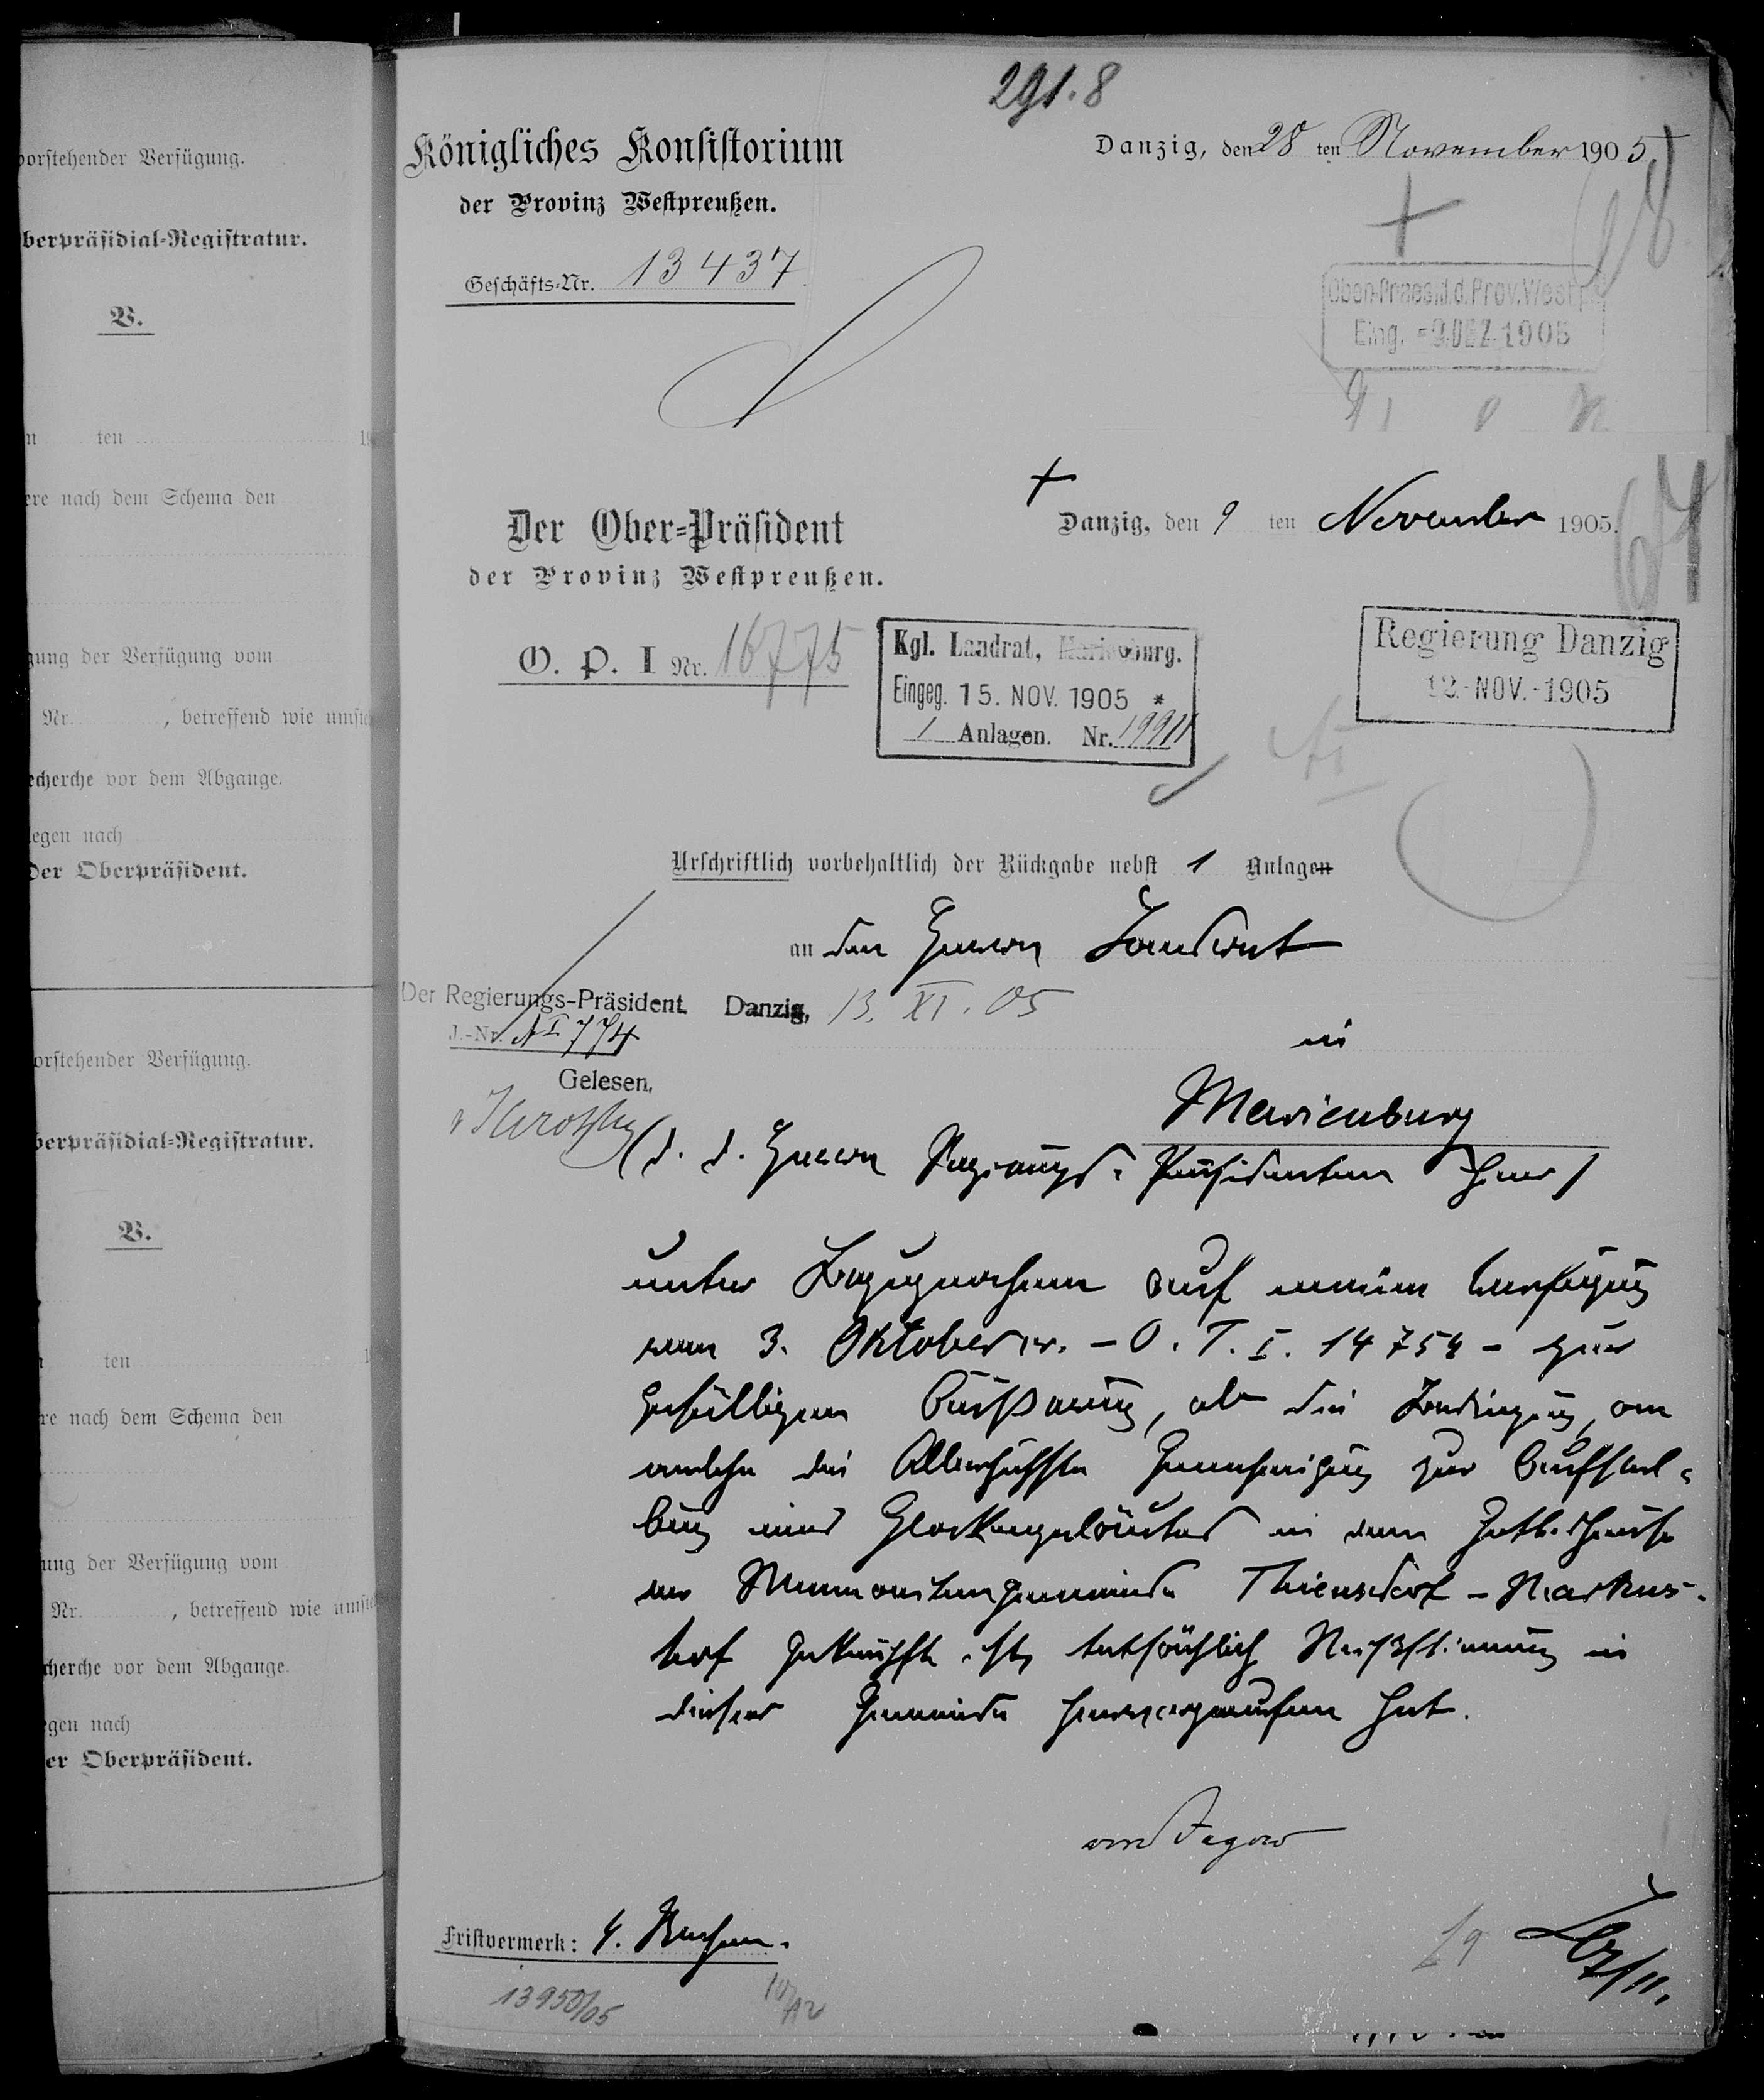 291.8
Königliches Konsistorium
der Provinz Westpreußen.
Geschäfts-Nr. 13437
Danzig, den 28 ten November 1905
Ober-Praesid. d. Prov. Westpr.
Eing. -9. DEZ. 1905
Der Ober-Präsident
der Provinz Westpreußen.
O. P. I Nr. 16775
Danzig, den 9 ten November 1905.
64
Kgl. Landrat, Marienburg.
Eingeg. 15. NOV. 1905 *
1 Anlagen. Nr. 19911
Regierung Danzig
12.-NOV.-1905
Urschriftlich vorbehaltlich der Rückgabe nebst 1 Anlagen
an den Herrn Landrat
Der Regierungs-Präsident. Danzig, 13. XI. 05
J.-Nr. N I 774
in
Gelesen.
Marienburg
(d. d. Herrn Regierungs-Präsidenten hier)
unter Bezugnahme auf meine Verfügung
vom 3. Oktober cr. - O. P. I. 14754 - zur
gefälligen Äußerung, ob die Bedingung, an
welche die Allerhöchste Genehmigung zur Aufstel-
lung eines Glockengeläutes in dem Gotteshause
der Mennonitengemeinde Thiensdorf-Markus-
hof geknüpft ist, tatsächlich Mißstimmung in
dieser Gemeinde hervorgerufen hat.
von Jagow
Fristvermerk: 4. Wochen.
13950/05
10/12
vorstehender Verfügung.
berpräsidial-Registratur.
V.
n ten 19
ere nach dem Schema den
gung der Verfügung vom
Nr. , betreffend wie umste
echerche vor dem Abgange.
legen nach
Der Oberpräsident.
orstehender Verfügung.
berpräsidial-Registratur.
V.
ten 1
re nach dem Schema den
ung der Verfügung vom
Nr. , betreffend wie umste
cherche vor dem Abgange.
egen nach
er Oberpräsident.